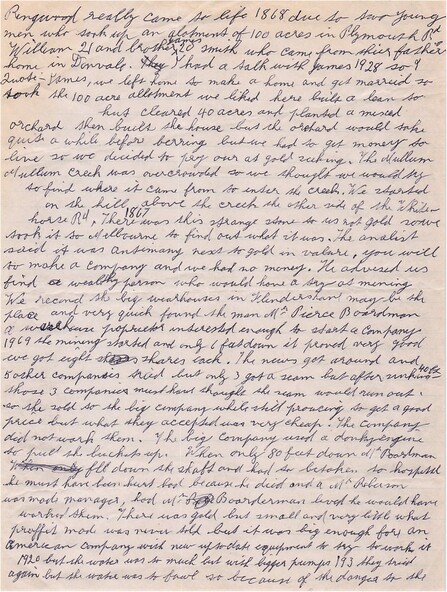 Ringwood really came to life 1868 due to two young
men who took up an alotment of 100 acres in Plymouth Rd
William 21 and brother James 20 Smith who came from their father
home in Donvale. I had a talk with James 1928 so I
Quote - James, we left home to make a home and get married so
took the 100 acre allotment we liked here built a lean to
hut cleared 40 acres and planted a mixed
orchard then built the house but the orchard would take
quite a while before berring but we had to get money to
live so we decided to try our at gold seking. The Mullum
Mullum Creek was overcrowded so we thought we would try
to find where it came from to enter the creek. We started
on the hill above the creek the other side of the White-
horse Rd, 1867 There was this strange stone to us not gold so we
took it to Melbourne to find out what it was. The analist
said it was antimony next to gold in valure, you will
to make a company and we had no money. He advised us
find a wealthy person who would have a try as mining
We recond the big wearhouses in Flinderslane may be the
place and very quick found the man Mr Pierce Boardman
a wearhouse propriotor interested enough to start a Company
1969 the mining started and only 6 fas down it proved very good
we got eight shares each. The news got around and
5 other companies tried but only 3 got a seam but after sinking 40 ft
those 3 companies must have thought the seam would run out.
so the sold to the big company while still proucing so get a good
price but what they accepted was very cheap. The Company
did not work them. The big company used a donky engine
to pull the buckets up. When only 80 feet down Mr Boardman
fill down the shaft and had to be taken to hospital
he must have been hurt bad because he died and a Mr Peterson
was made manager, had Mr Boarderman lived he would have
worked them. There was gold but small and very little what
proffit made was never told but it was big enough for an
american company with new up to date equipment to try to work it
1920 but the water was to much but with bigger pumps 193 they tried
again but the water was to fowl so because of the danger to the